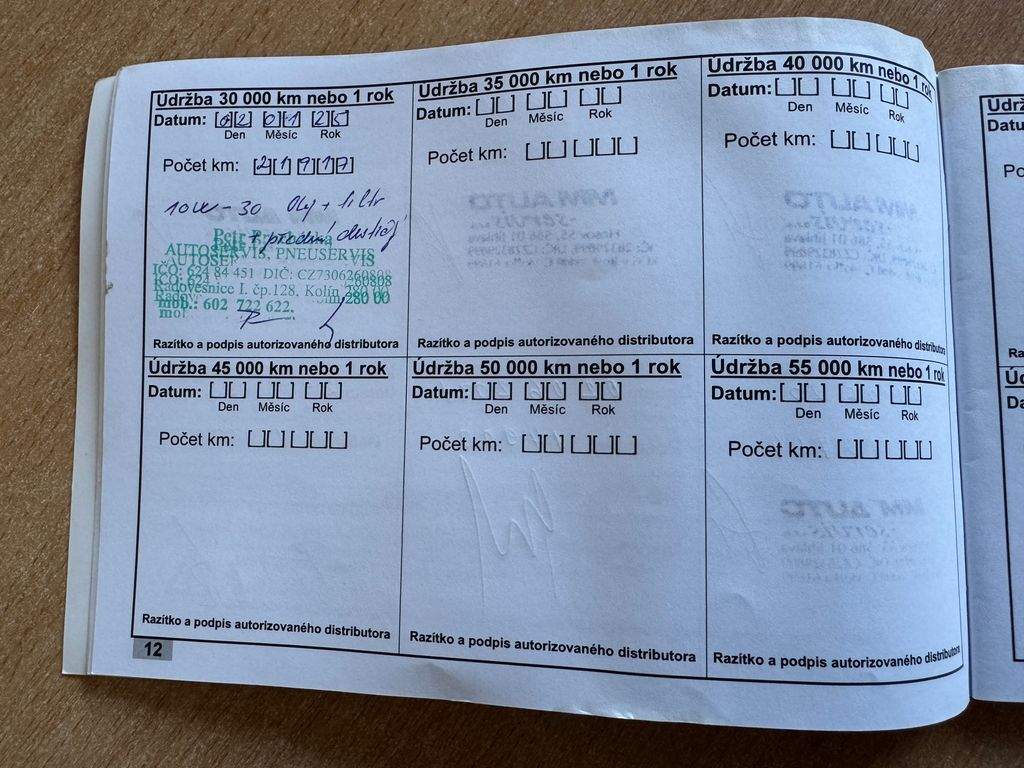 Údržba 30 000 km nebo 1 rok
Datum: 02 01 25
Den Měsíc Rok
Počet km: 21917
10W-30 Olej + filtr
+ přední destičky
Petr
AUTOSERVIS, PNEUSERVIS
IČO: 624 84 451 DIČ: CZ7306260808
Radovesnice I. čp.128, Kolín 280 00
mob.: 602 722 622
Razítko a podpis autorizovaného distributora
Údržba 35 000 km nebo 1 rok
Datum:
Den Měsíc Rok
Počet km:
Razítko a podpis autorizovaného distributora
Údržba 40 000 km nebo 1 rok
Datum:
Den Měsíc Rok
Počet km:
Razítko a podpis autorizovaného distributora
Údržba 45 000 km nebo 1 rok
Datum:
Den Měsíc Rok
Počet km:
Razítko a podpis autorizovaného distributora
Údržba 50 000 km nebo 1 rok
Datum:
Den Měsíc Rok
Počet km:
Razítko a podpis autorizovaného distributora
Údržba 55 000 km nebo 1 rok
Datum:
Den Měsíc Rok
Počet km:
Razítko a podpis autorizovaného distributora
12